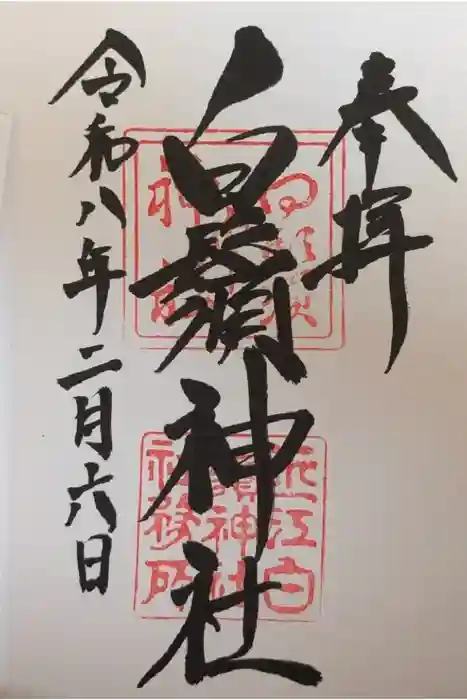 奉拝
白鬚神社
令和八年二月六日
白鬚
神社
近江白
鬚神社
社務所